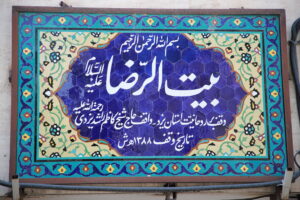 بسم الله الرحمن الرحیم
بیت الرضا علیه السلام
وقف بر روحانیت استان یزد، واقف حاج شیخ کاظم راشد یزدی رحمة الله علیه
تاریخ وقف ۱۳۸۸ ه ش